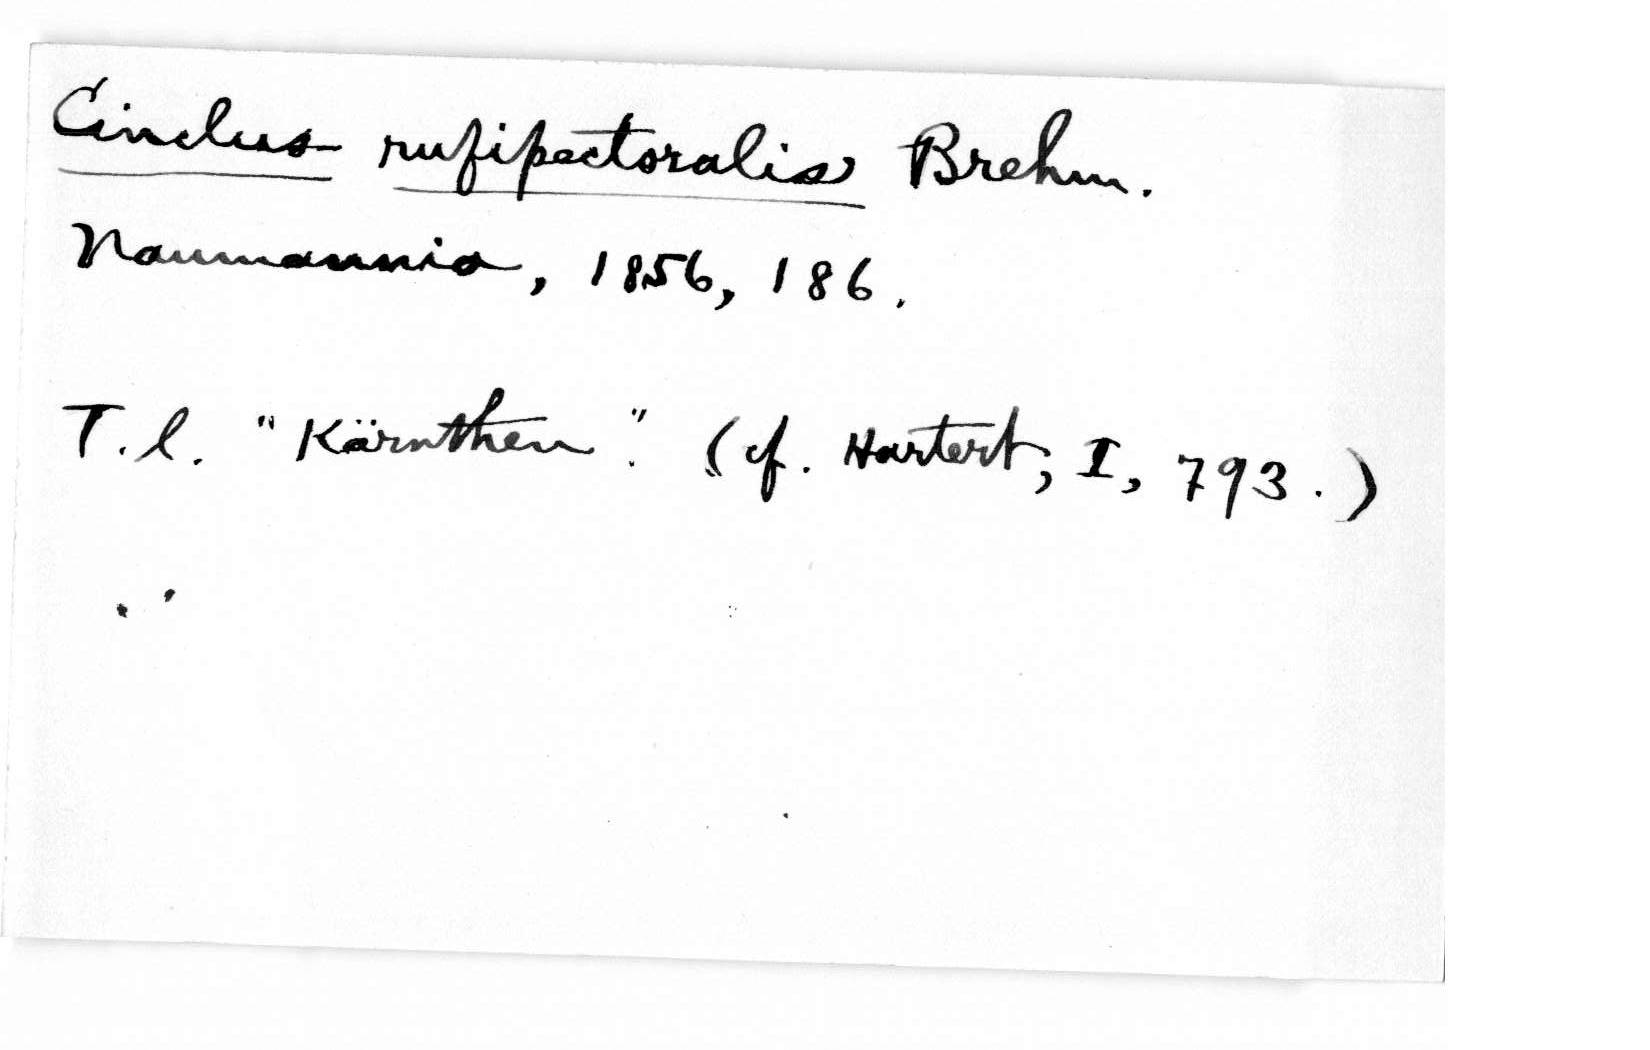 Cinclus rufipectoralis Brehm.
Naumannia, 1856, 186.
T.l. "Kärnthen". (cf. Hartert, I, 793.)